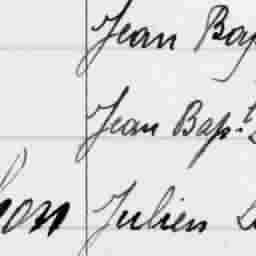 Jean Bap
Jean Bap.t
Julien